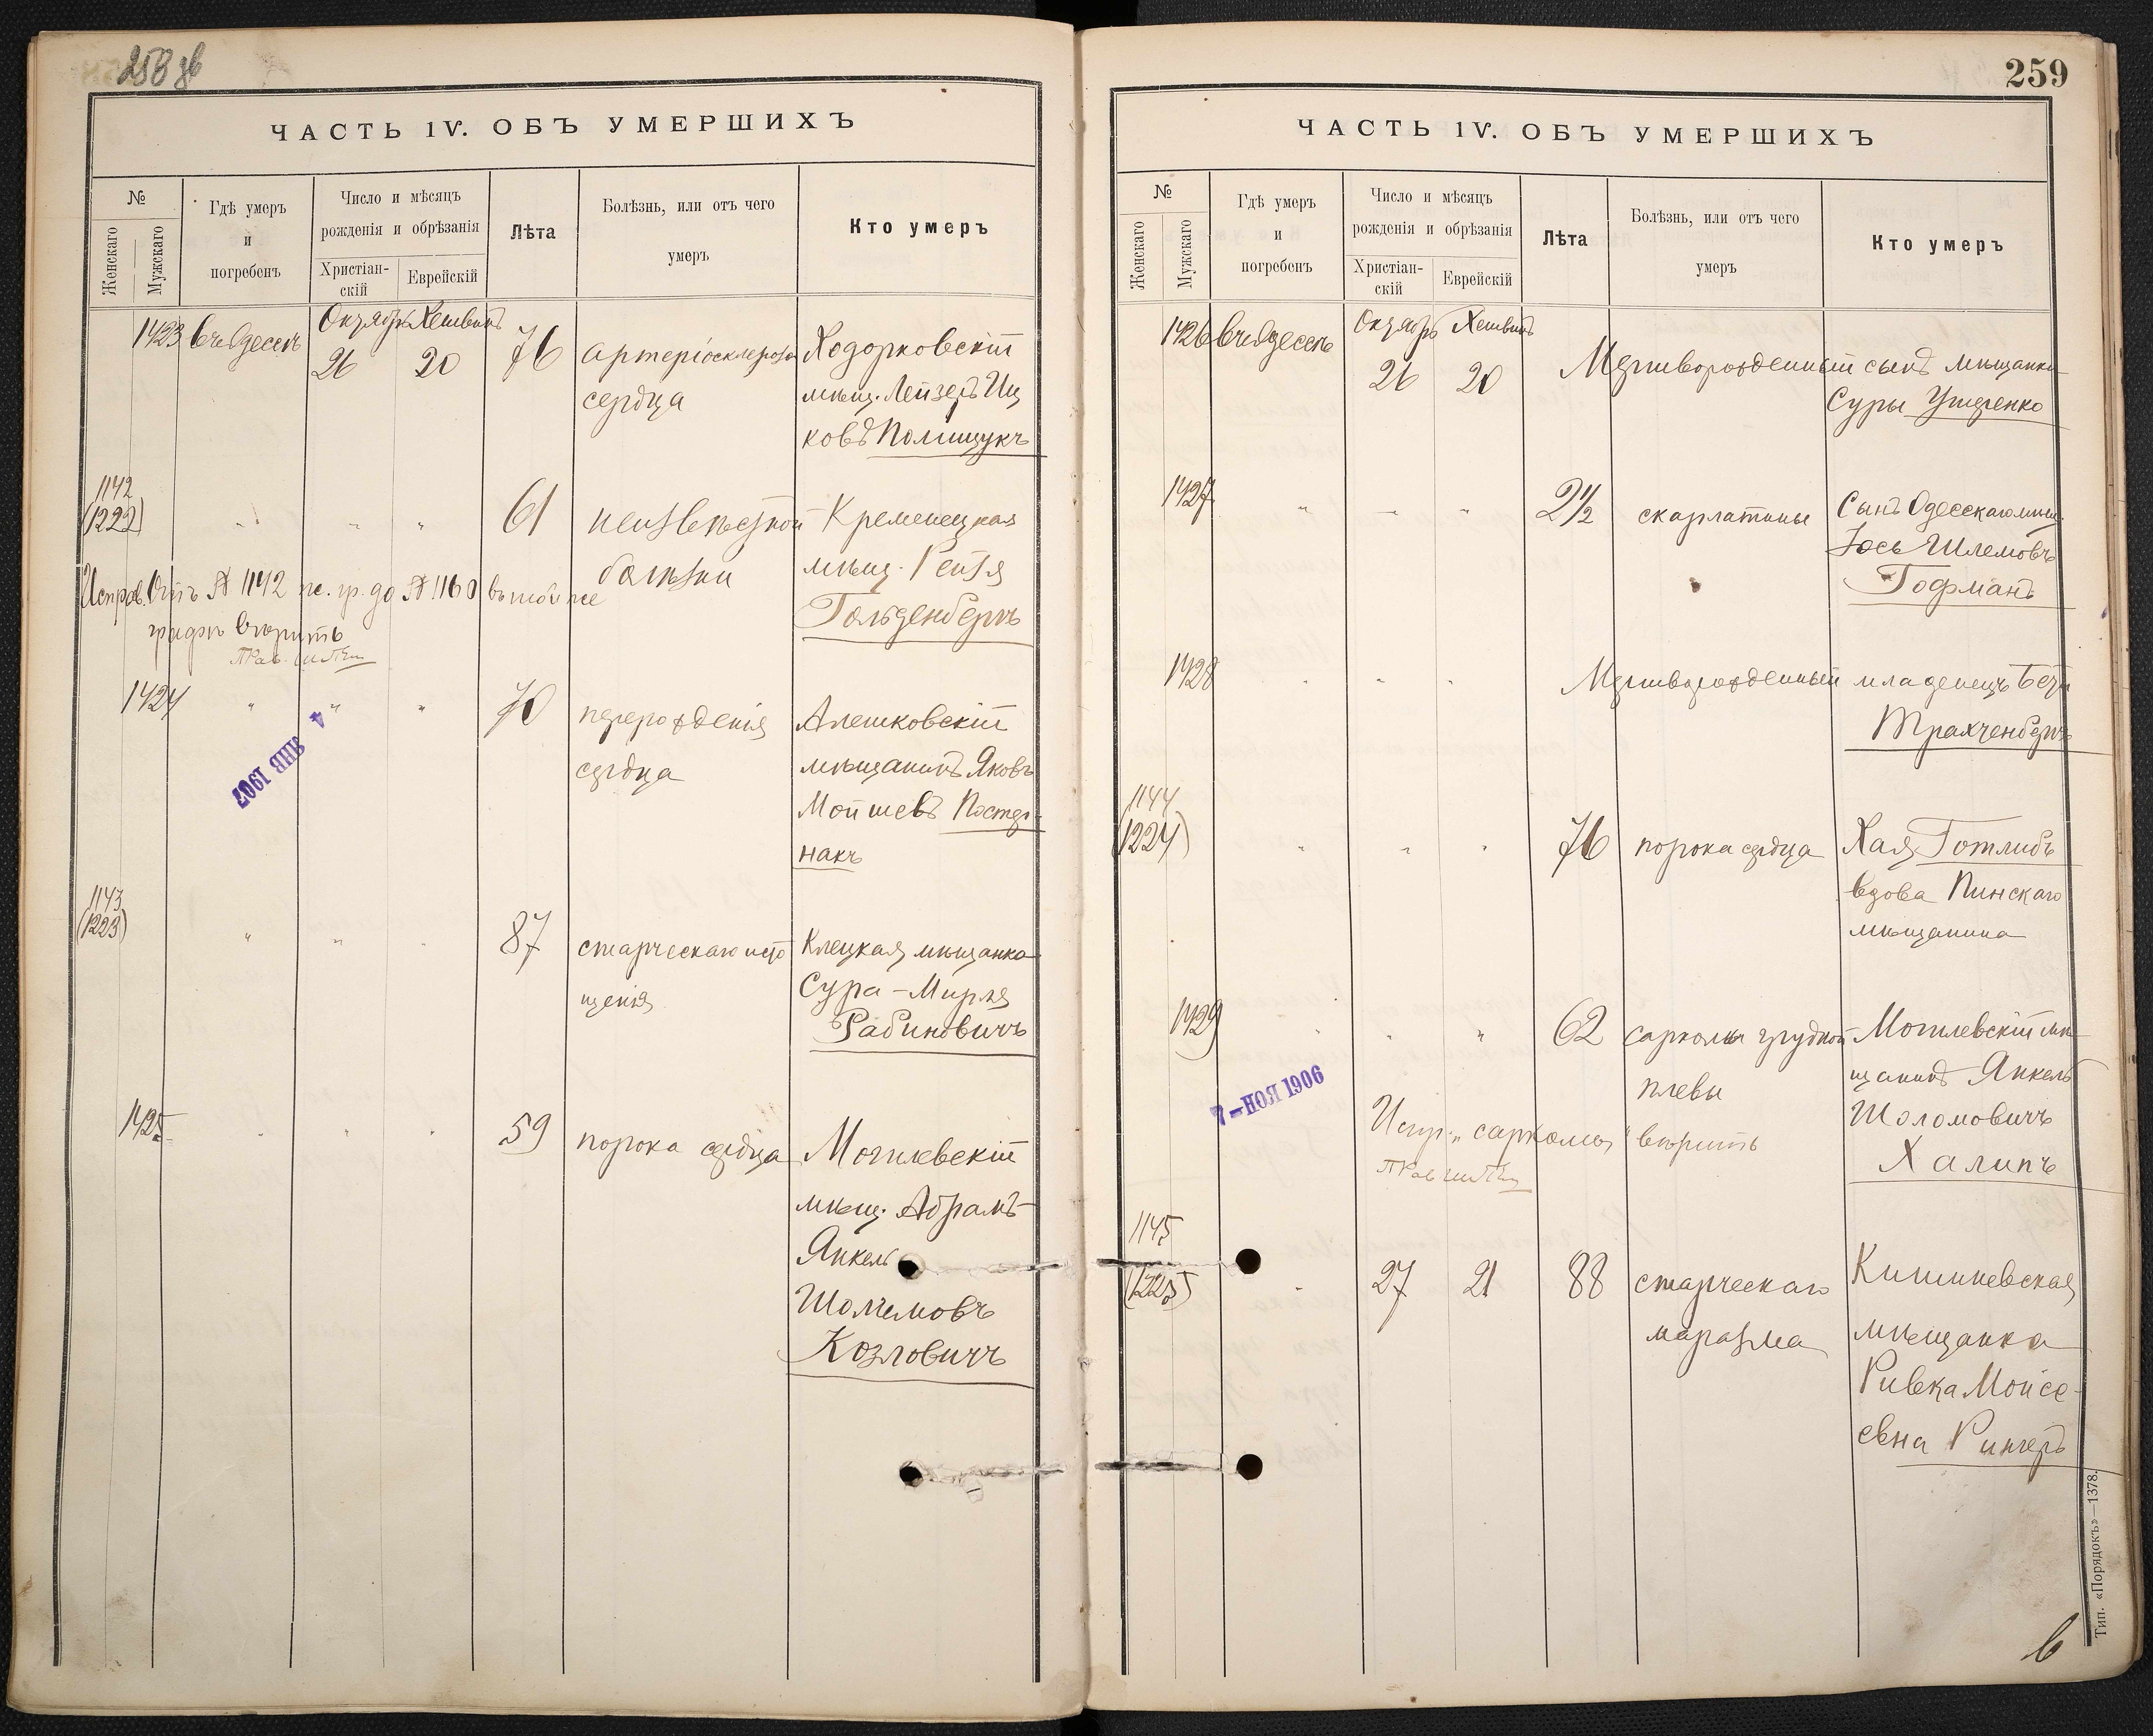 258 об
ЧАСТЬ IV. ОБЪ УМЕРШИХЪ
№
Женскаго
Мужскаго
Гдѣ умеръ
и
погребенъ
Число и мѣсяцъ
рожденія и обрѣзанія
Христіан-
скій
Еврейскій
Лѣта
Болѣзнь, или отъ чего
умеръ
Кто умеръ
1423 въ г. Одессѣ Октябрь Хешванъ
26 20 76 артеріосклероза
сердца
Ходорковскій
мѣщ. Лейзеръ Иц
ковъ Полищукъ
1142
(1222) " " " 61 неизвѣстной
болѣзни
Кременецкая
мѣщ. Рейзя
Гольденбергъ
Исправ. Отъ № 1142 ж. гр. до № 1160 въ той же
графѣ вѣрить
1424 " " " 70 перерожденія
сердца
Алешковскій
мѣщанинъ Яковъ
Мойшевъ Постер-
накъ
4 ЯНВ 1907
1143
(1223) " " " 87 старческаго исто
щенія
Клецкая мѣщанка
Сура-Мирля
Рабиновичъ
1425 " " " 59 порока сердца
Могилевскій
мѣщ. Абрамъ-
Янкель
Шолемовъ
Козловичъ
259
ЧАСТЬ IV. ОБЪ УМЕРШИХЪ
№
Женскаго
Мужскаго
Гдѣ умеръ
и
погребенъ
Число и мѣсяцъ
рожденія и обрѣзанія
Христіан-
скій
Еврейскій
Лѣта
Болѣзнь, или отъ чего
умеръ
Кто умеръ
1426 въ г. Одессѣ Октябрь Хешванъ
26 20 Мертворожденный сынъ мѣщанки
Суры
1427 " " " 2 1/2 скарлатины
Сынъ Одесскаго мѣщ.
Іось Шлемовъ
Гофманъ
1428 " " " Мертворожденный младенецъ
Трахченбергъ
1144
(1224) " " " 76 порока сердца
Хая Готлибъ
вдова Пинскаго
мѣщанина
1429 " " " 62 саркомы грудной
плевы
Могилевскій мѣ-
щанинъ Янкель
Шоломовичъ
Халипъ
7-НОЯ 1906
Испр. „саркомы" вѣрить
1145
(1225) " 27 21 88 старческаго
маразма
Кишиневская
мѣщанка
Ривка Мойсе-
евна Рингеръ
Тип. «Порядокъ»—1378.